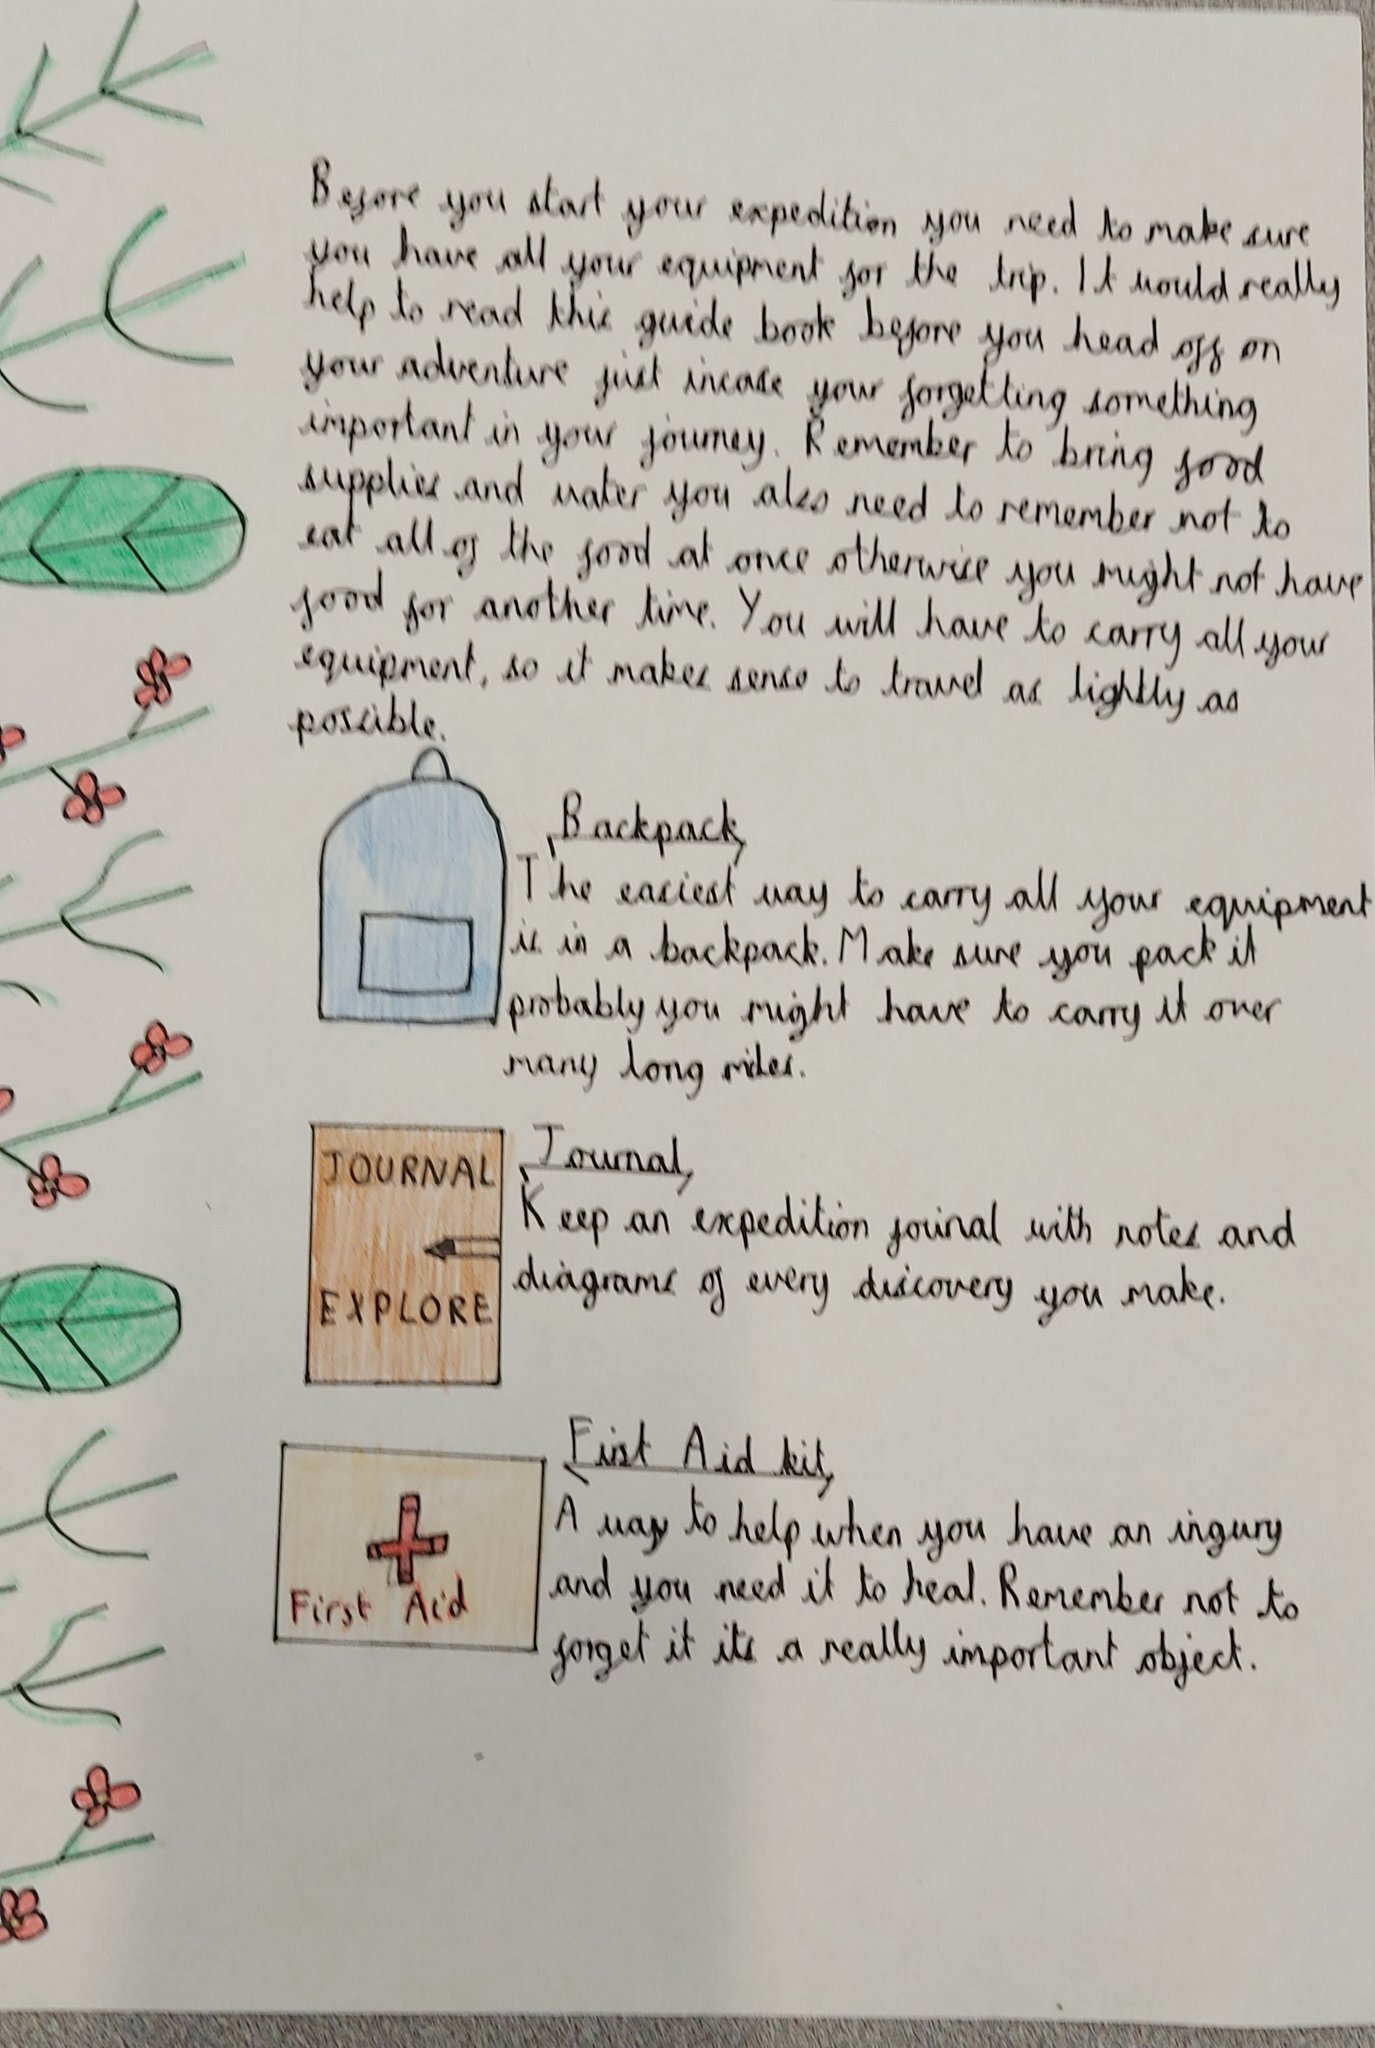 Before you start your expedition you need to make sure
you have all your equipment for the trip. It would really
help to read this guide book before you head off on
your adventure just incase your forgetting something
important in your journey. Remember to bring food
supplies and water you also need to remember not to
eat all of the food at once otherwise you might not have
food for another time. You will have to carry all your
equipment, so it makes sense to travel as lightly as
possible.
Backpack
The easiest way to carry all your equipment
is in a backpack. Make sure you pack it
probably you might have to carry it over
many long miles.
JOURNAL
EXPLORE
Journal
Keep an expedition journal with notes and
diagrams of every discovery you make.
First Aid
First Aid kit
A way to help when you have an ingury
and you need it to heal. Remember not to
forget it its a really important object.